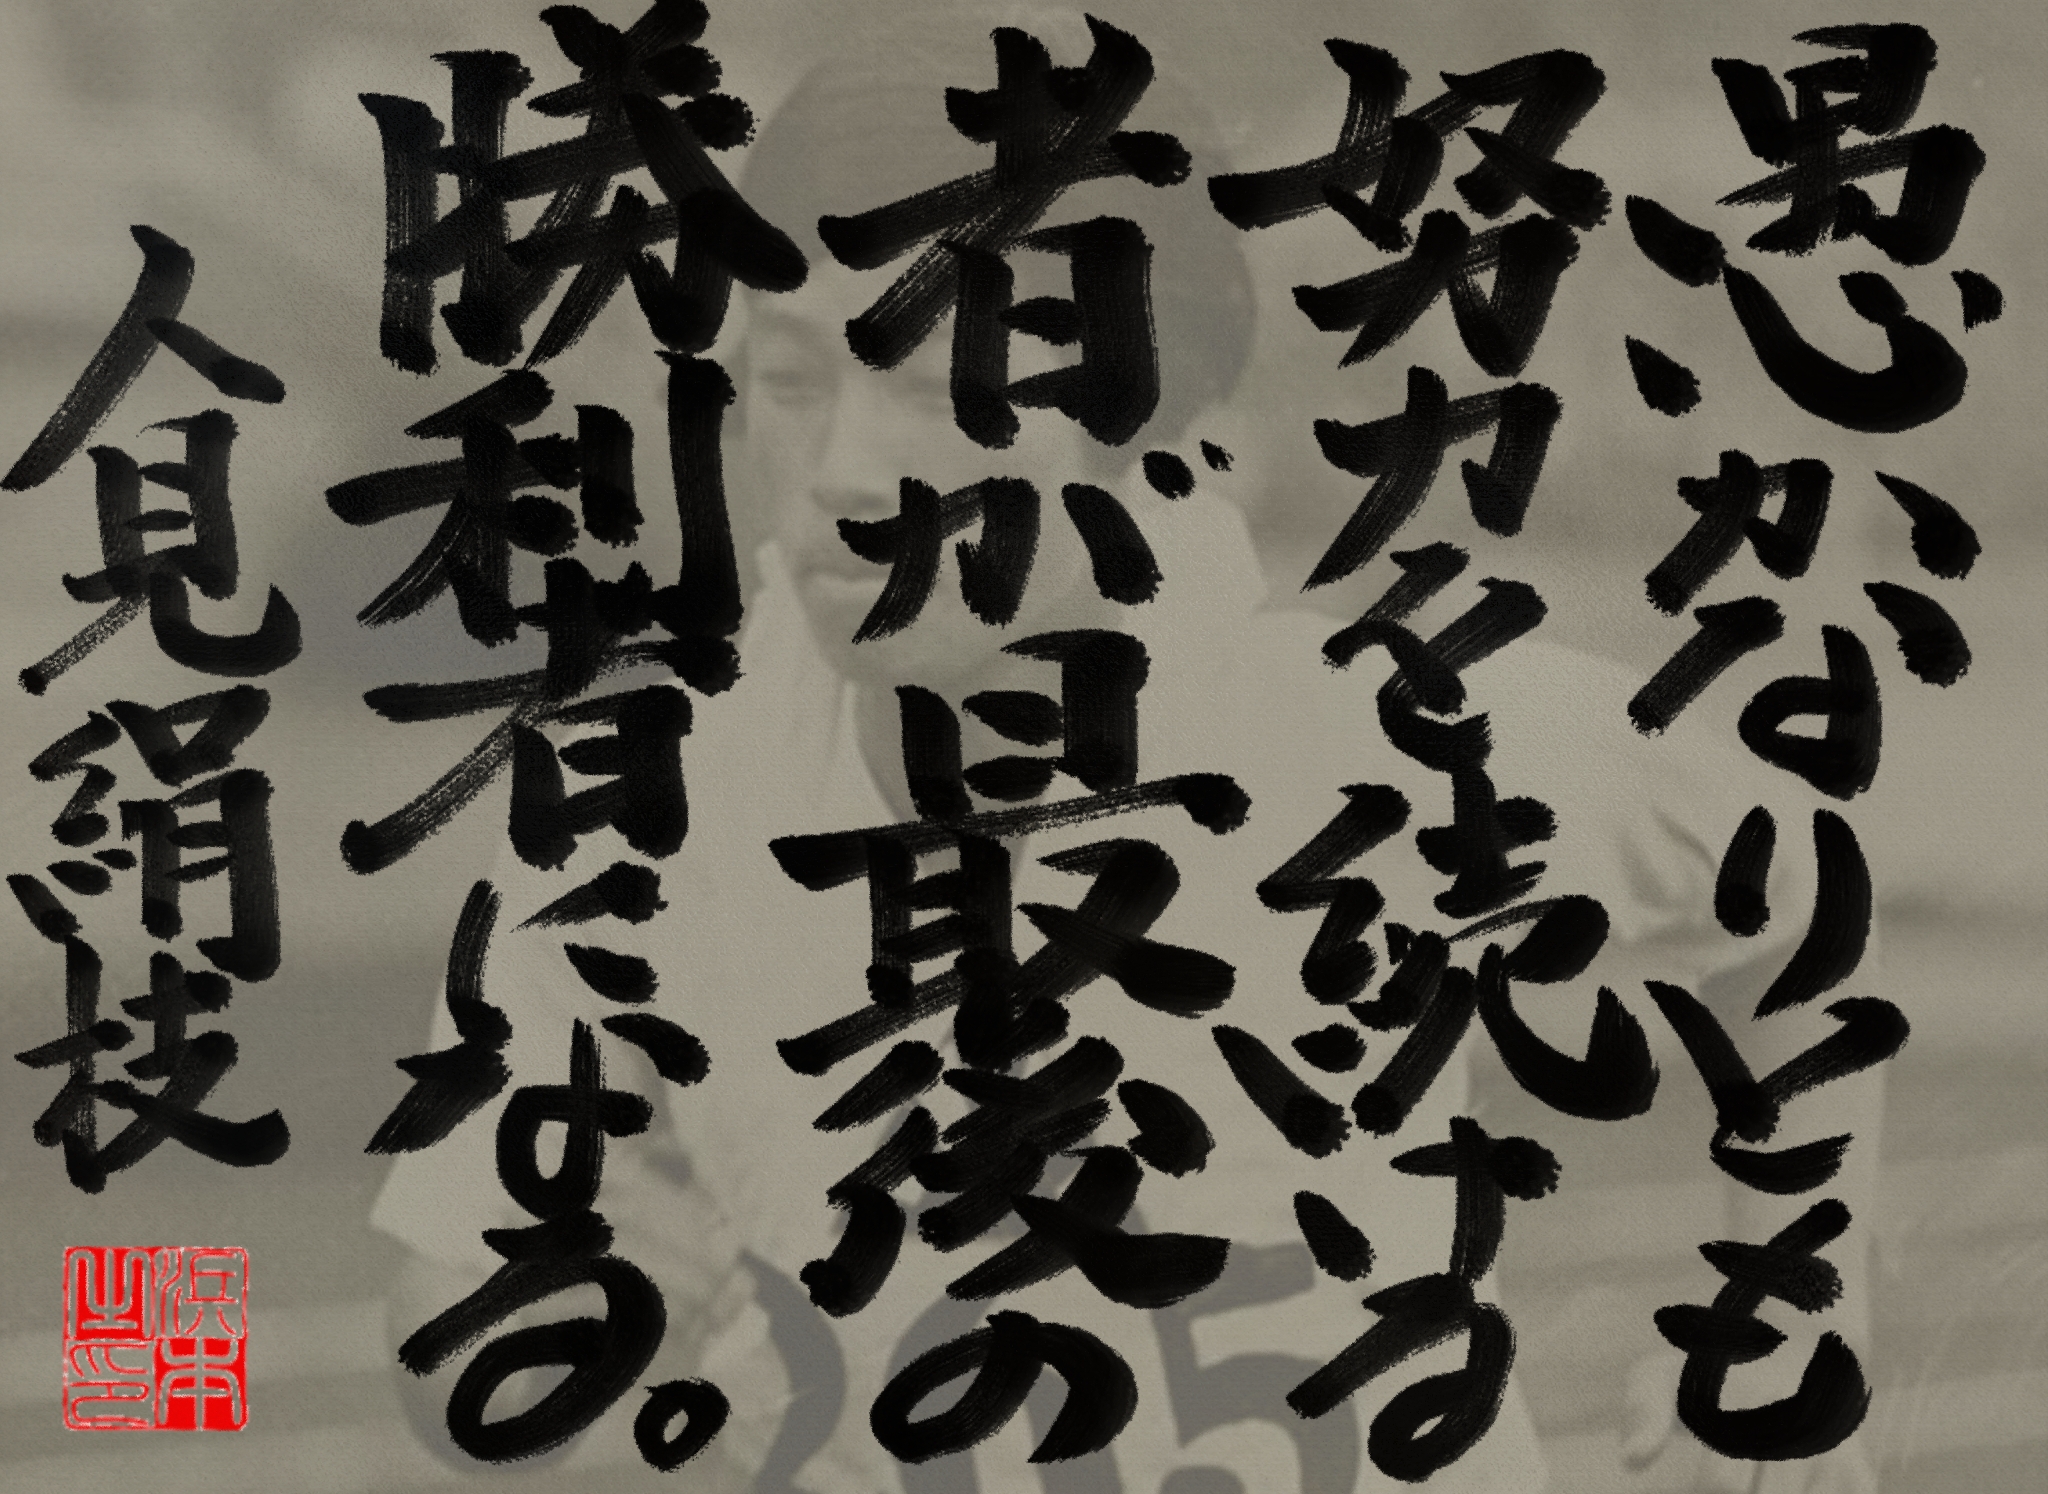 愚かなりとも
努力を続ける
者が最後の
勝利者になる。
人見絹枝
浜本
之印